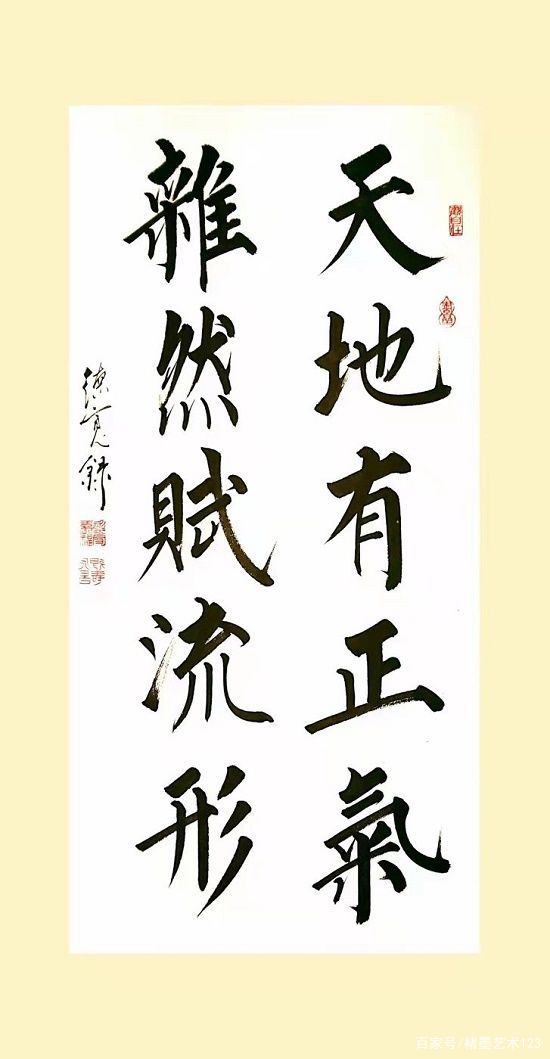 天地有正氣
雜然賦流形
德寬錄
百家号/楮墨艺术123